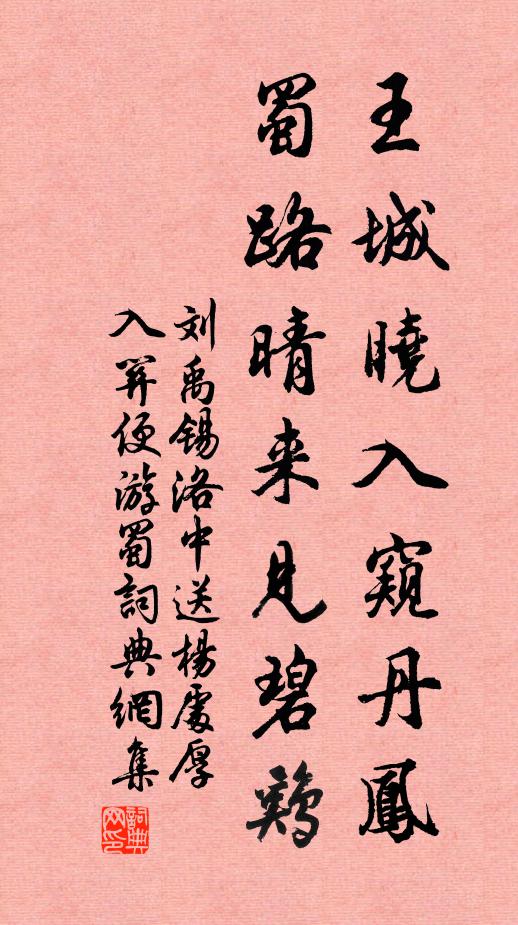 王城曉入窺丹鳳
蜀路晴来見碧鷄
刘禹锡洛中送楊處厚
入関便游蜀詞典網集
詞典网印